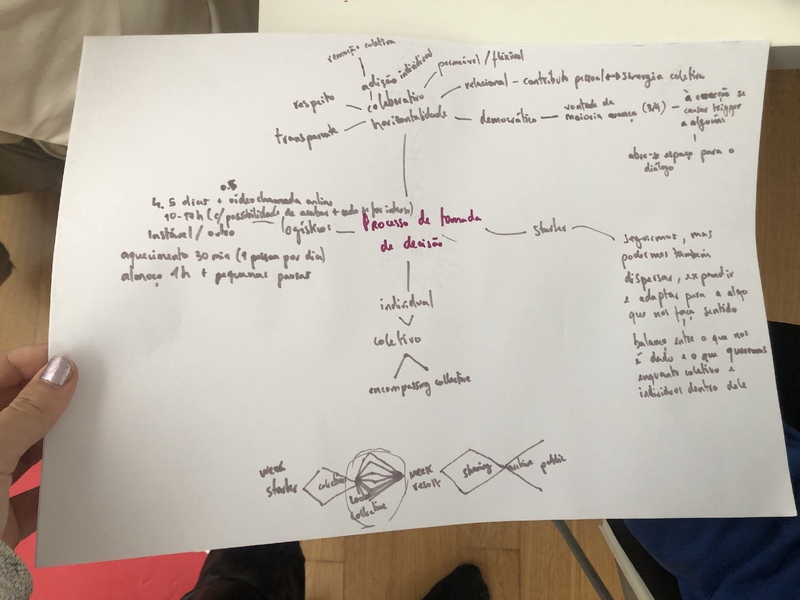 remoção coletiva
adição individual
permeável / flexível
respeito
colaborativo
relacional - contributo pessoal ↔ sinergia coletiva
transparente
horizontalidade
democrático
vontade da
maioria avança (3/4)
à exceção se
causar trigger
a alguém
abre-se espaço para o
diálogo
4. 5 dias + videochamada online
10-17h (c/ possibilidade de
instável / outro
logísticos
aquecimento 30 min (1 pessoa por dia)
almoço 1h + pequenas pausas
Processo de tomada
de decisão
starter
seguirmos, mas
podermos também
dispersar, expandir
e adaptar para a algo
que nos faça sentido
balanço entre o que nos
é dado e o que queremos
enquanto coletivo e
indivíduos dentro dele
individual
coletivo
encompassing collective
week
starter
collective
week
result
sharing
public